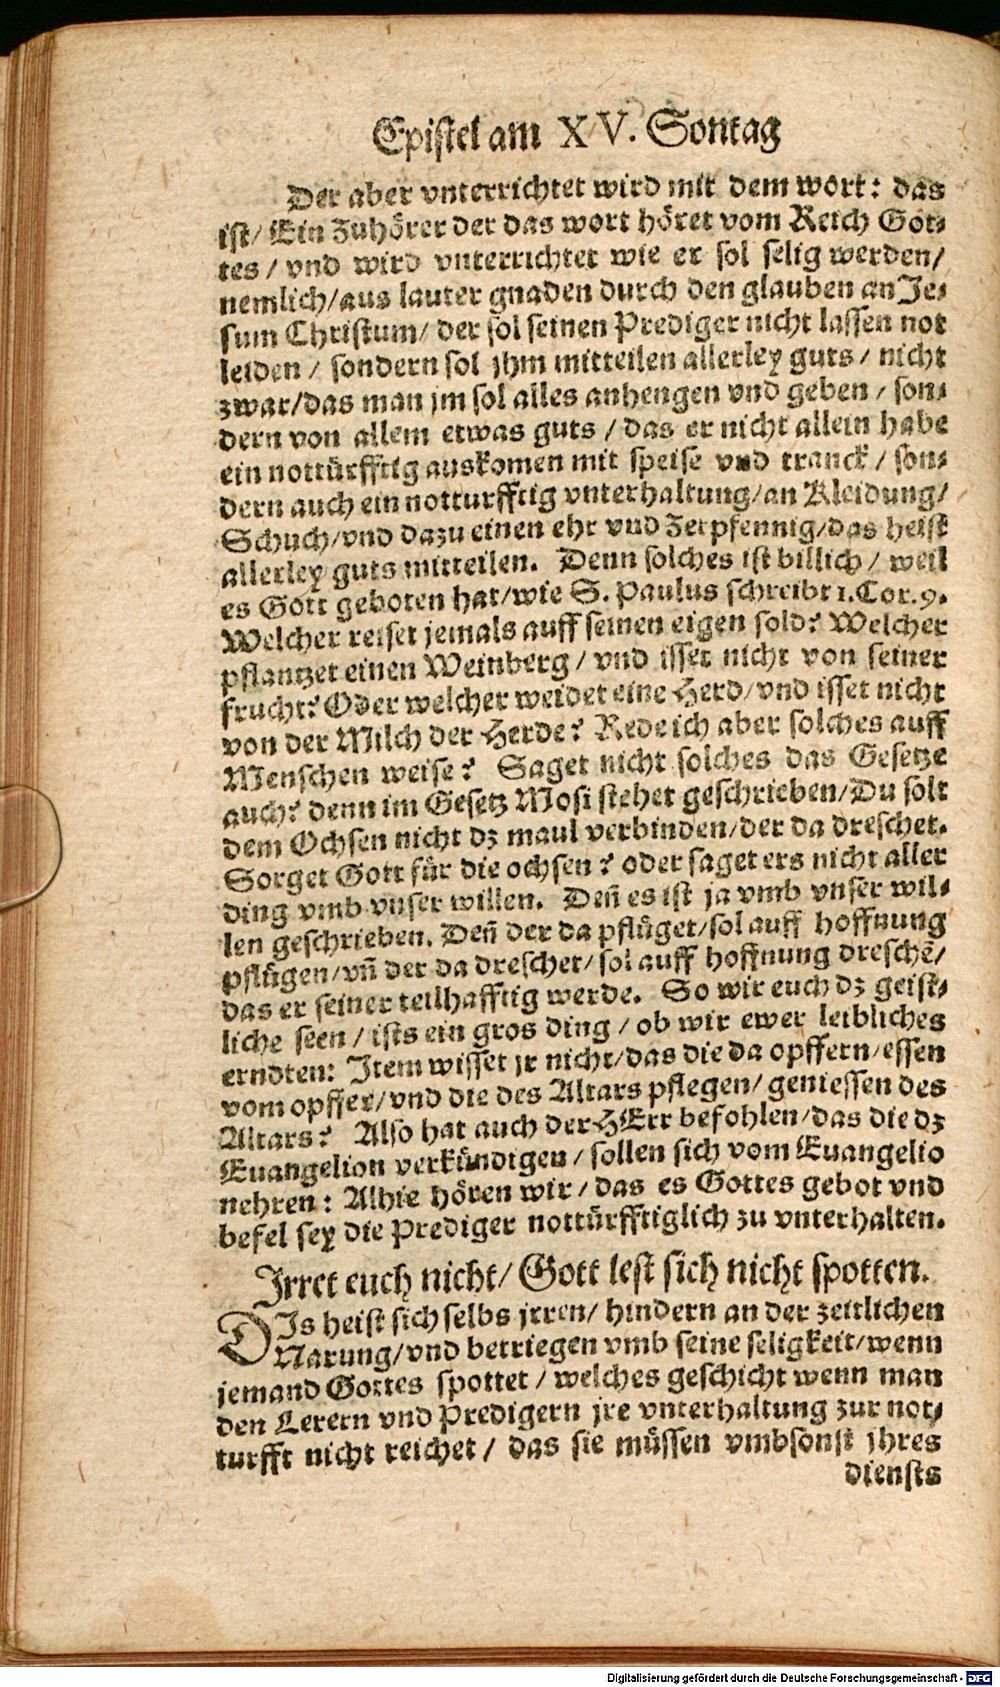 Epistel am XV. Sontag
Der aber vnterrichtet wird mit dem wort: das
ist/ Ein Zuhörer der das wort höret vom Reich Got⸗
tes / vnd wird vnterrichtet wie er sol selig werden/
nemlich/aus lauter gnaden durch den glauben an Je⸗
sum Christum/ der sol seinen Prediger nicht lassen not
leiden / sondern sol jhm mitteilen allerley guts / nicht
zwar/das man jm sol alles anhengen vnd geben / son⸗
dern von allem etwas guts / das er nicht allein habe
ein nottürfftig auskomen mit speise vnd tranck / son⸗
dern auch ein notturfftig vnterhaltung/an Kleidung/
Schuch/vnd dazu einen ehr vnd Zerpfennig/das heist
allerley guts mitteilen. Denn solches ist billich / weil
es Gott geboten hat/wie S. Paulus schreibt 1.Cor.9.
Welcher reiset jemals auff seinen eigen sold? Welcher
pflantzet einen Weinberg / vnd isset nicht von seiner
frucht? Oder welcher weidet eine Herd/vnd isset nicht
von der Milch der Herde? Rede ich aber solches auff
Menschen weise? Saget nicht solches das Gesetze
auch? denn im Gesetz Mosi stehet geschrieben/Du solt
dem Ochsen nicht dz maul verbinden/der da dreschet.
Sorget Gott für die ochsen? oder saget ers nicht aller
ding vmb vnser willen. Deñ es ist ja vmb vnser wil⸗
len geschrieben. Deñ der da pflüget/sol auff hoffnung
pflügen/vñ der da dreschet/sol auff hoffnung dreschē/
das er seiner teilhafftig werde. So wir euch dz geist⸗
liche seen / ists ein gros ding / ob wir ewer leibliches
erndten: Item wisset jr nicht/das die da opffern/essen
vom opffer/vnd die des Altars pflegen/ geniessen des
Altars? Also hat auch der HErr befohlen/das die dz
Euangelion verkündigen / sollen sich vom Euangelio
nehren: Alhie hören wir / das es Gottes gebot vnd
befel sey die Prediger nottürfftiglich zu vnterhalten.
Irret euch nicht/ Gott lest sich nicht spotten.
DIs heist sich selbs jrren/ hindern an der zeitlichen
Narung/vnd betriegen vmb seine seligkeit/wenn
jemand Gottes spottet / welches geschicht wenn man
den Lerern vnd Predigern jre vnterhaltung zur not⸗
turfft nicht reichet / das sie müssen vmbsonst jhres
diensts
Digitalisierung gefördert durch die Deutsche Forschungsgemeinschaft - DFG